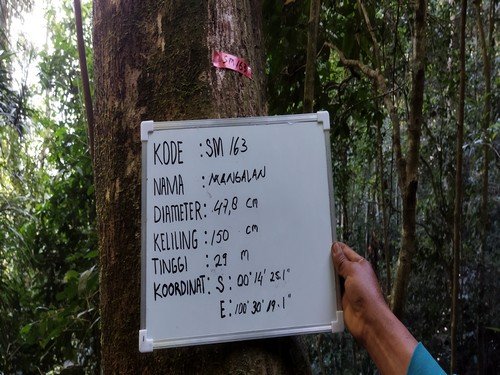 SM 163
KODE : SM 163
NAMA : MANGALAN
DIAMETER : 47,8 cm
KELILING : 150 cm
TINGGI : 29 m
KOORDINAT : S : 00° 14' 25.1"
E : 100° 30' 19.1"